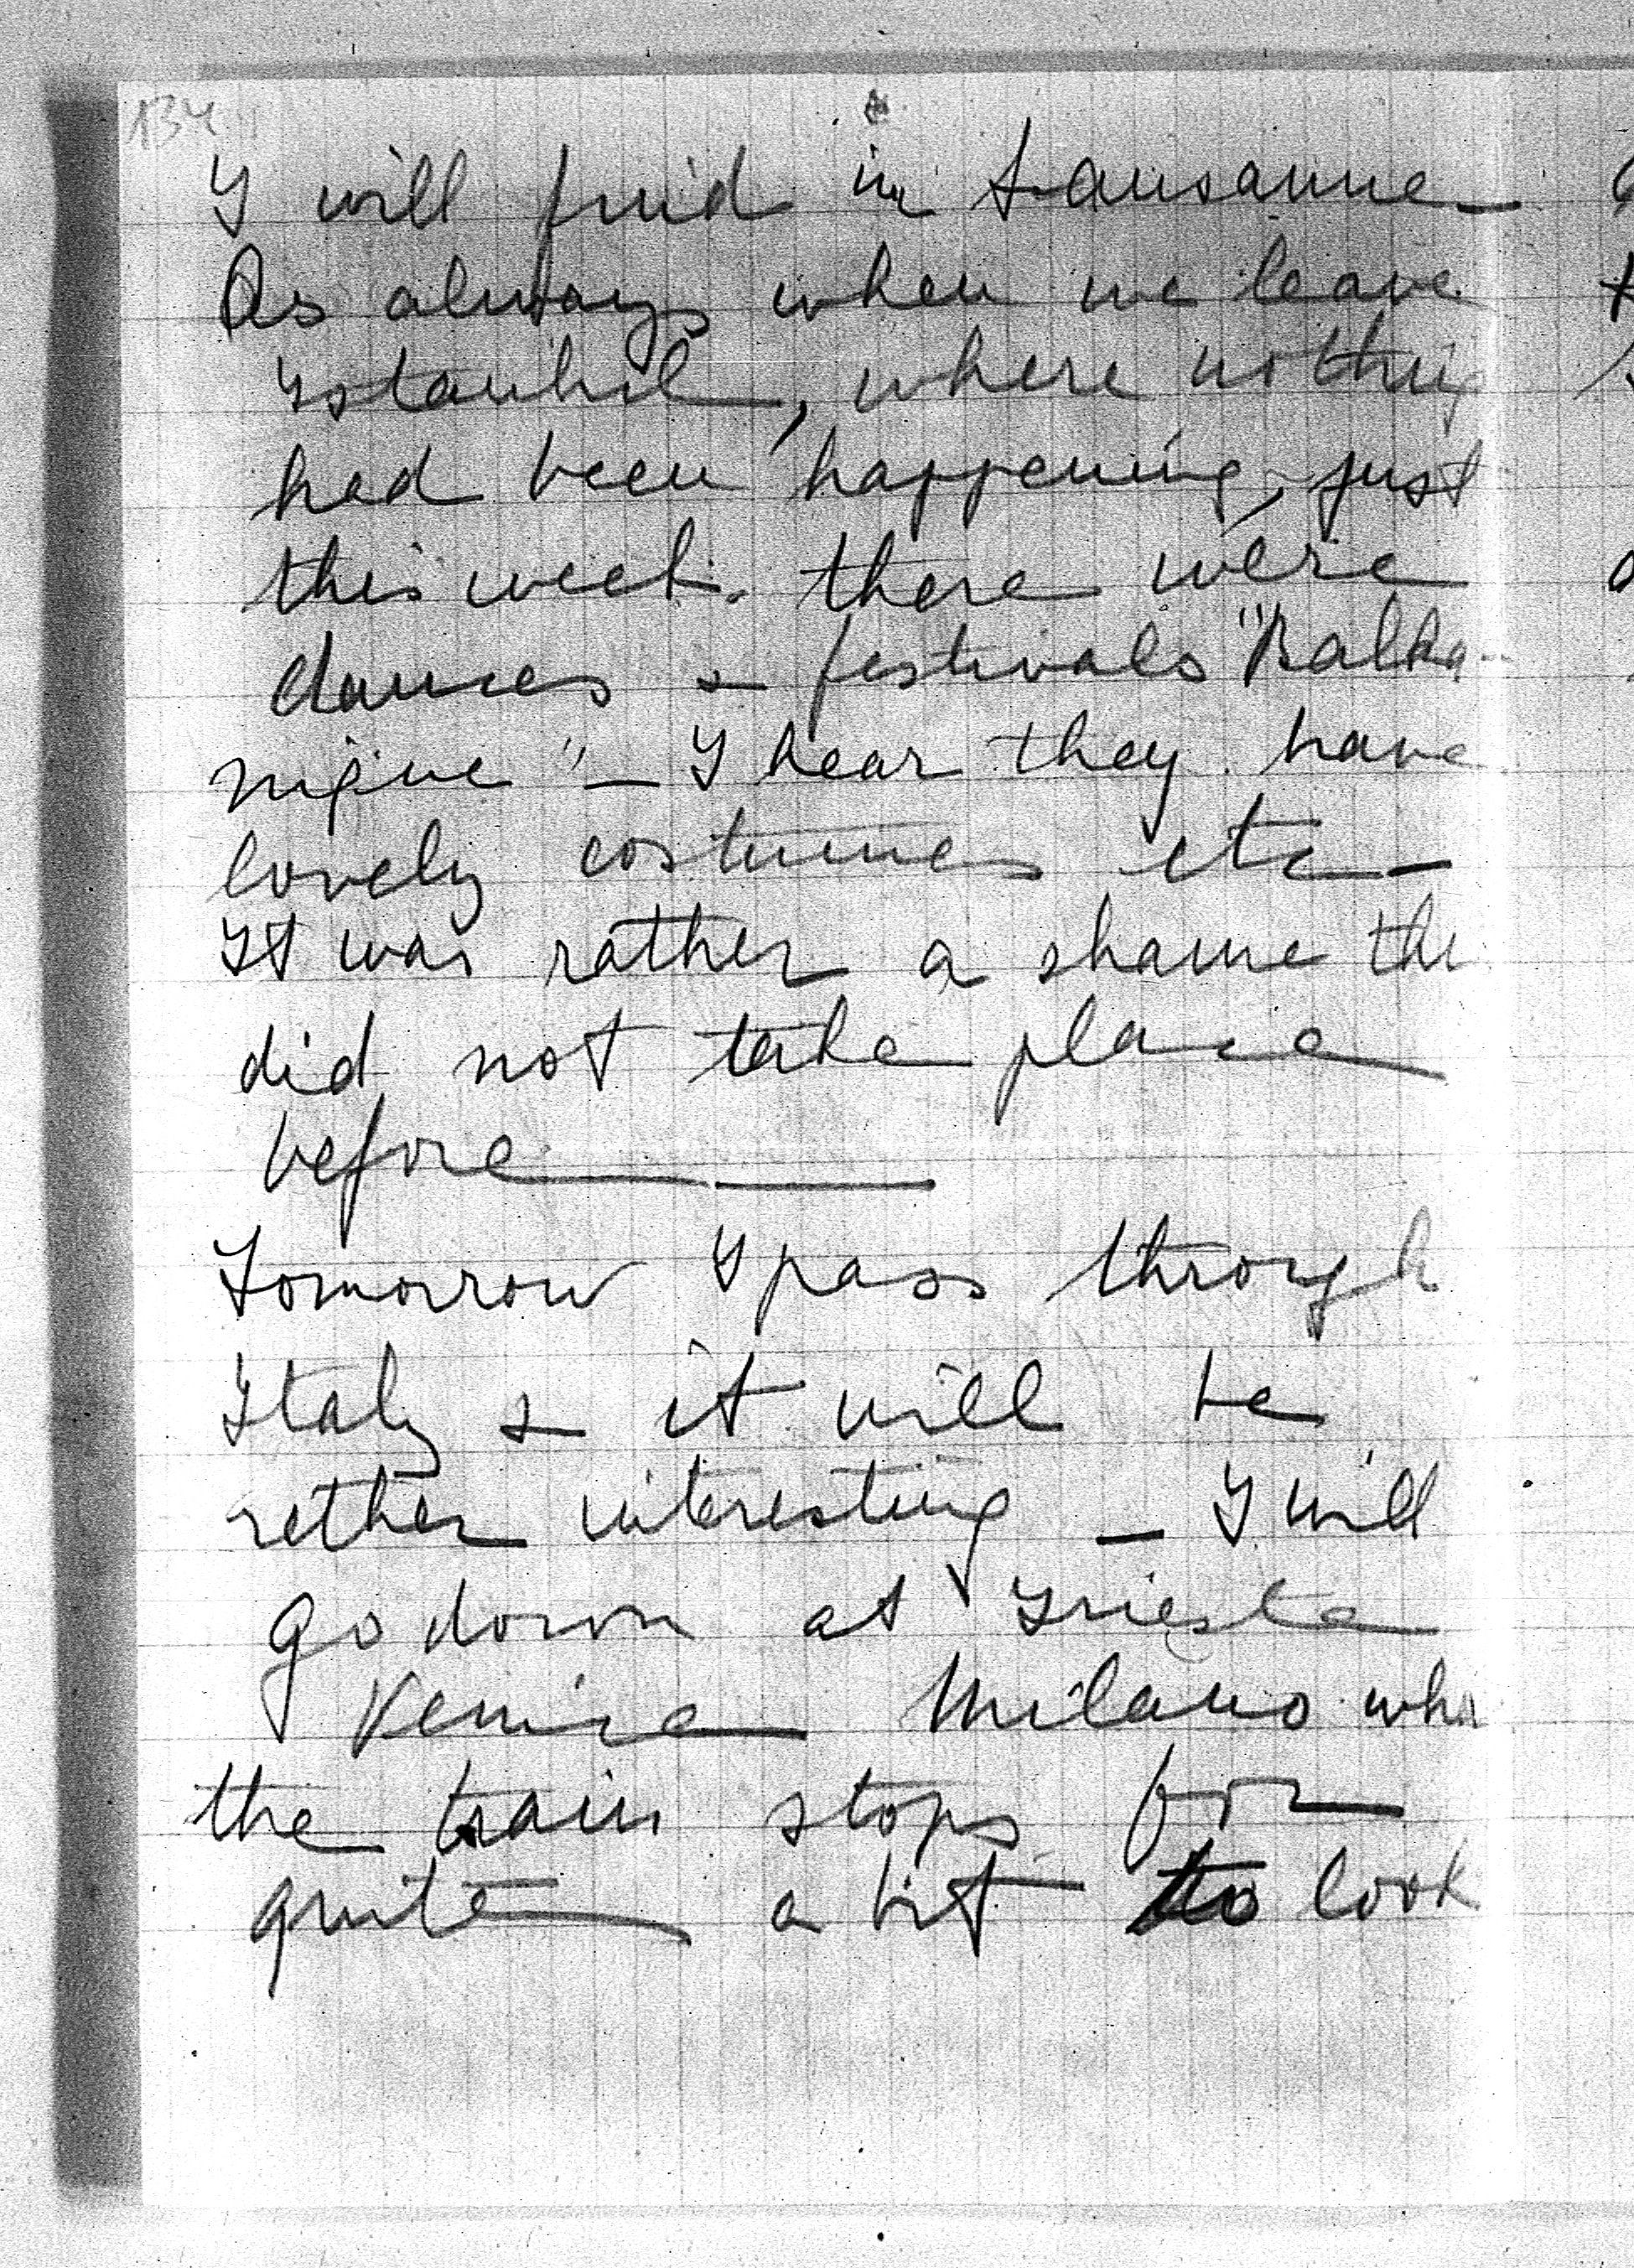 134
I will find in Lausanne_
As always when we leave
Istanbul, where nothing
had been happening, just
this week. there were
dances & festivals "Balka-
nique" _ I hear they have
lovely costumes etc_
It was rather a shame the
did not take place
before_
Tomorrow I pass through
Italy & it will be
rether interesting _ I will
go down at Trieste
Venice Milano whe
the train stops for
quite a bit to look